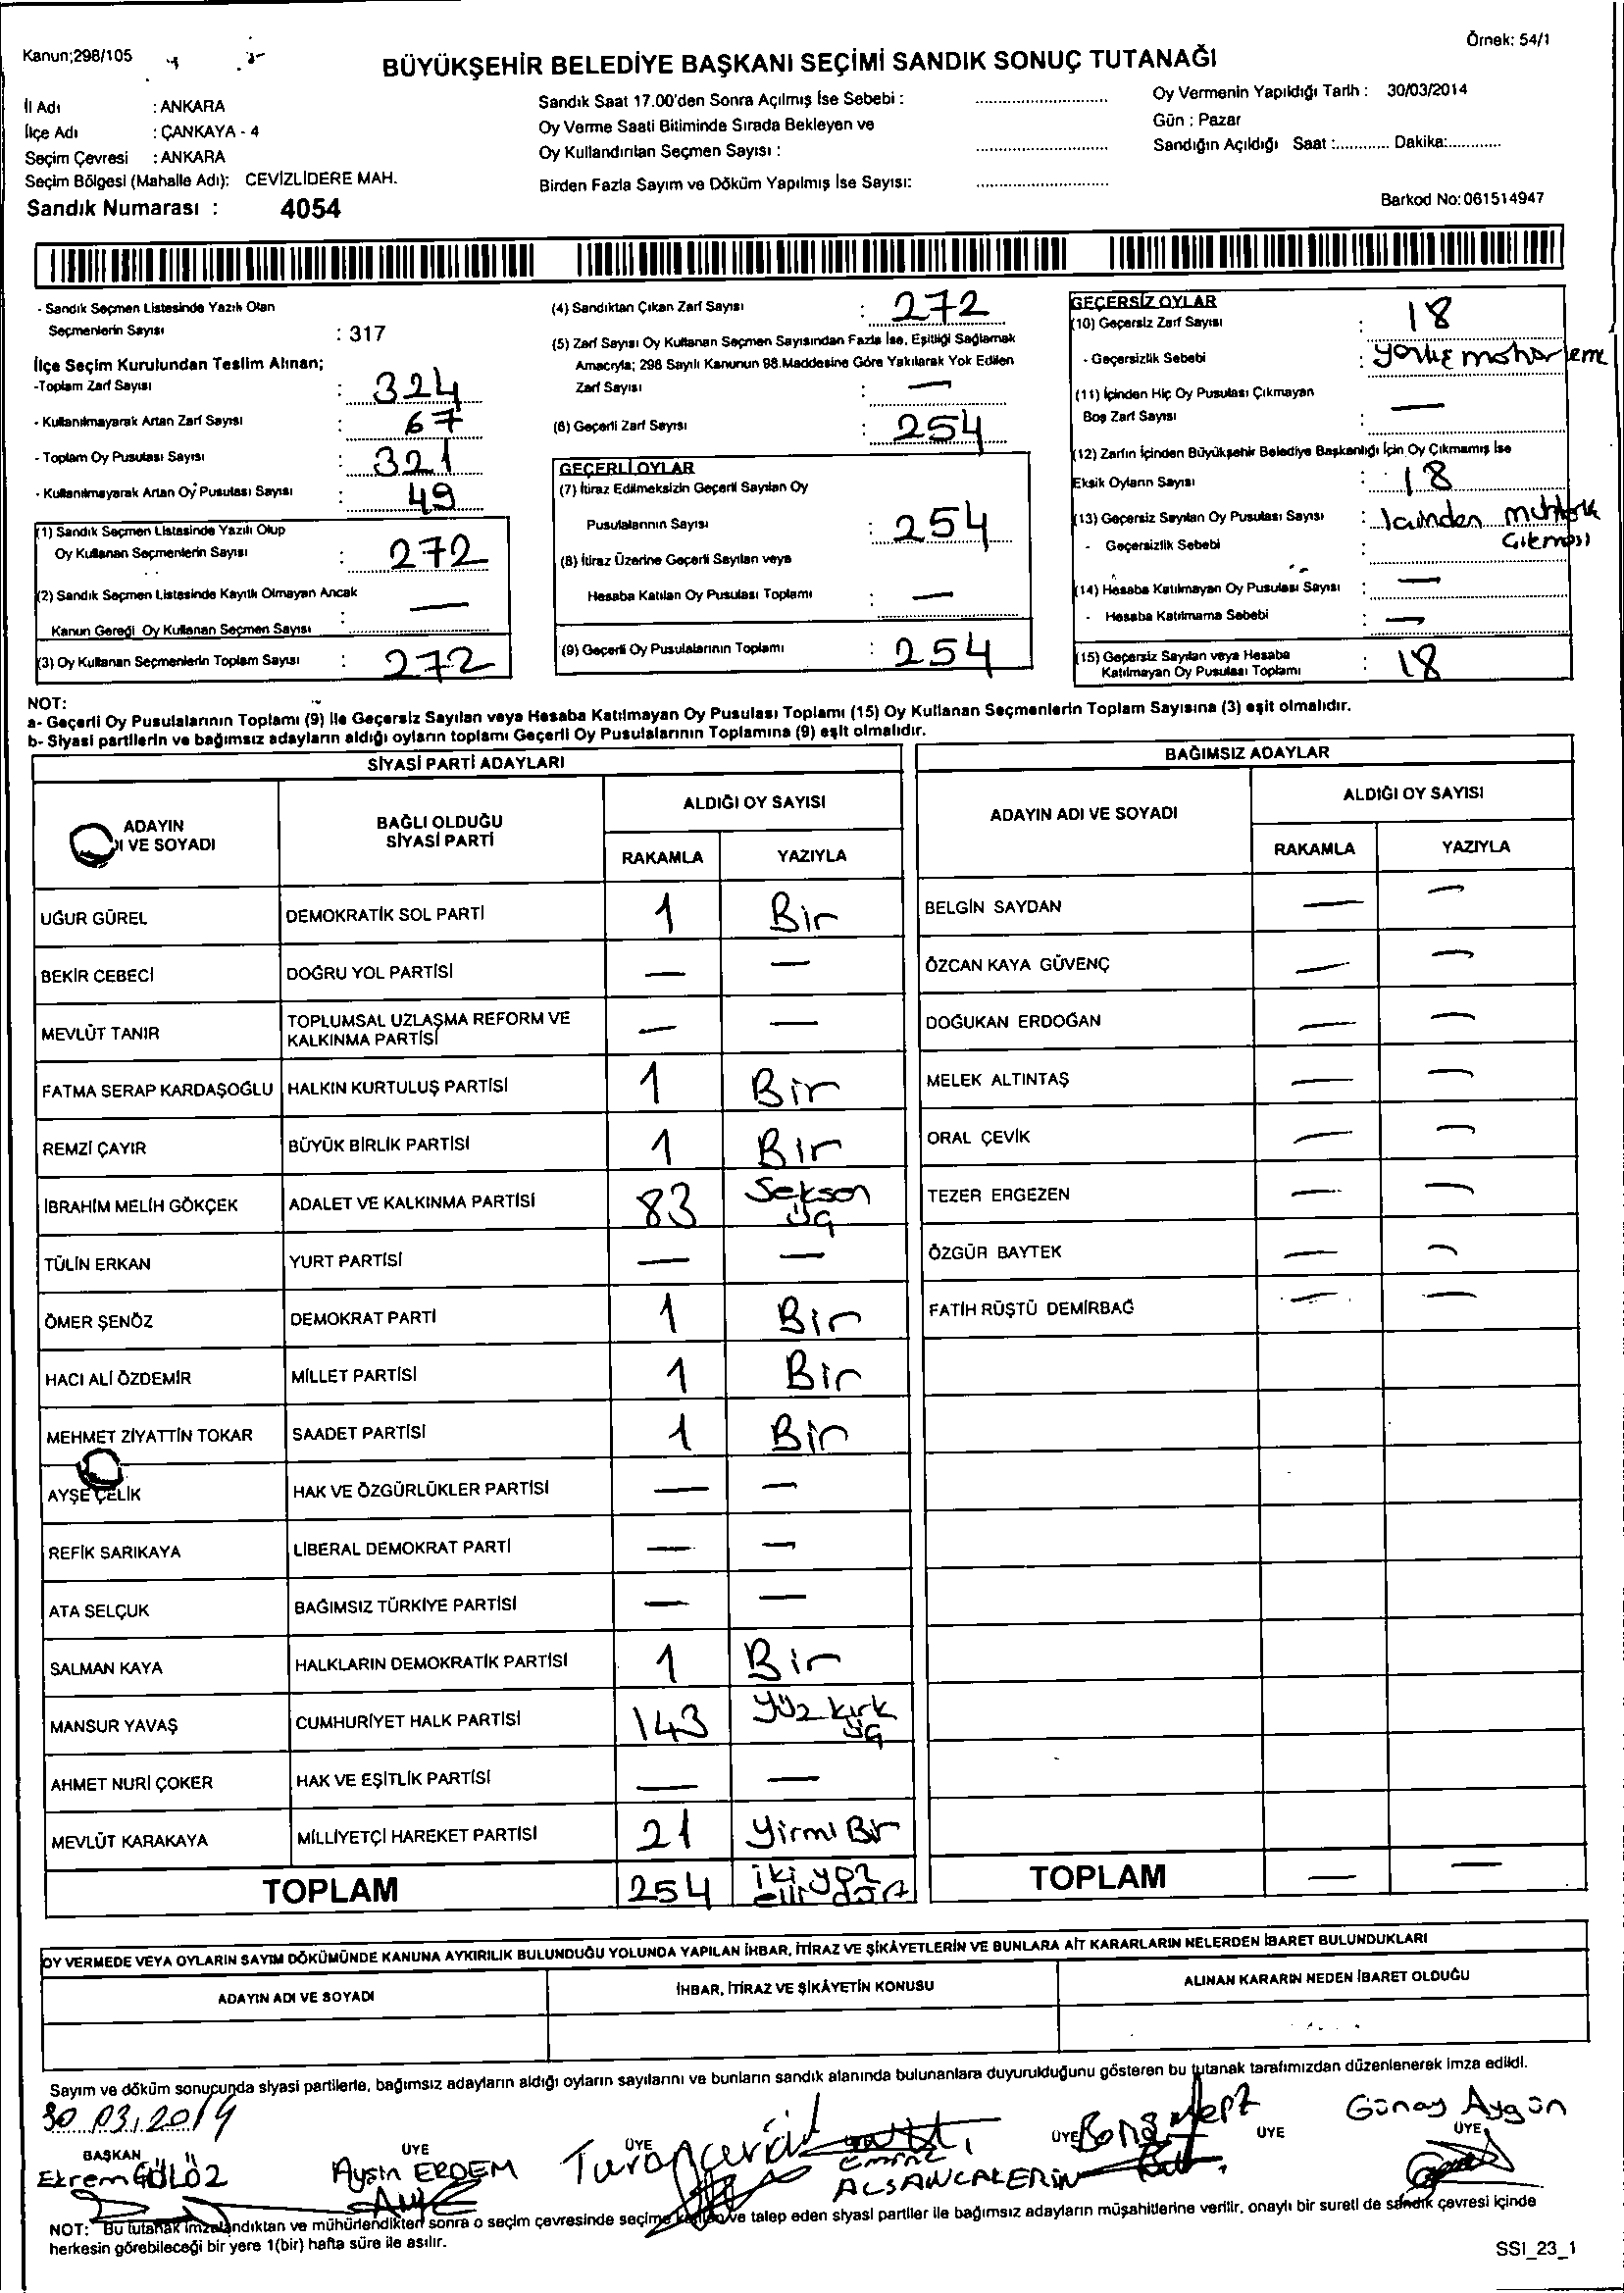 Kanun;298/105
Örnek: 54/1
BÜYÜKŞEHİR BELEDİYE BAŞKANI SEÇİMİ SANDIK SONUÇ TUTANAĞI
İl Adı : ANKARA
İlçe Adı : ÇANKAYA - 4
Seçim Çevresi : ANKARA
Seçim Bölgesi (Mahalle Adı): CEVİZLİDERE MAH.
Sandık Numarası : 4054
Sandık Saat 17.00'den Sonra Açılmış İse Sebebi :
Oy Verme Saati Bitiminde Sırada Bekleyen ve
Oy Kullandırılan Seçmen Sayısı :
Birden Fazla Sayım ve Döküm Yapılmış İse Sayısı:
Oy Vermenin Yapıldığı Tarih : 30/03/2014
Gün : Pazar
Sandığın Açıldığı Saat :............ Dakika:............
Barkod No:061514947
- Sandık Seçmen Listesinde Yazılı Olan
Seçmenlerin Sayısı : 317
İlçe Seçim Kurulundan Teslim Alınan;
-Toplam Zarf Sayısı : 324
- Kullanılmayarak Artan Zarf Sayısı : 67
- Toplam Oy Pusulası Sayısı : 321
- Kullanılmayarak Artan Oy Pusulası Sayısı : 49
(1) Sandık Seçmen Listesinde Yazılı Olup
Oy Kullanan Seçmenlerin Sayısı : 272
(2) Sandık Seçmen Listesinde Kayıtlı Olmayan Ancak
Kanun Gereği Oy Kullanan Seçmen Sayısı : —
(3) Oy Kullanan Seçmenlerin Toplam Sayısı : 272
(4) Sandıktan Çıkan Zarf Sayısı : 272
(5) Zarf Sayısı Oy Kullanan Seçmen Sayısından Fazla İse, Eşitliği Sağlamak
Amacıyla; 298 Sayılı Kanunun 98.Maddesine Göre Yakılarak Yok Edilen
Zarf Sayısı : —
(6) Geçerli Zarf Sayısı : 254
GEÇERLİ OYLAR
(7) İtiraz Edilmeksizin Geçerli Sayılan Oy
Pusulalarının Sayısı : 254
(8) İtiraz Üzerine Geçerli Sayılan veya
Hesaba Katılan Oy Pusulası Toplamı : —
(9) Geçerli Oy Pusulalarının Toplamı : 254
GEÇERSİZ OYLAR
(10) Geçersiz Zarf Sayısı : 18
- Geçersizlik Sebebi :
(11) İçinden Hiç Oy Pusulası Çıkmayan
Boş Zarf Sayısı : —
(12) Zarfın İçinden Büyükşehir Belediye Başkanlığı İçin Oy Çıkmamış İse
Eksik Oyların Sayısı : 18
(13) Geçersiz Sayılan Oy Pusulası Sayısı : İcinden
- Geçersizlik Sebebi :
(14) Hesaba Katılmayan Oy Pusulası Sayısı : —
- Hesaba Katılmama Sebebi : —
(15) Geçersiz Sayılan veya Hesaba
Katılmayan Oy Pusulası Toplamı : 18
NOT:
a- Geçerli Oy Pusulalarının Toplamı (9) ile Geçersiz Sayılan veya Hesaba Katılmayan Oy Pusulası Toplamı (15) Oy Kullanan Seçmenlerin Toplam Sayısına (3) eşit olmalıdır.
b- Siyasi partilerin ve bağımsız adayların aldığı oyların toplamı Geçerli Oy Pusulalarının Toplamına (9) eşit olmalıdır.
SİYASİ PARTİ ADAYLARI
ADAYIN
I VE SOYADI
BAĞLI OLDUĞU
SİYASİ PARTİ
ALDIĞI OY SAYISI
RAKAMLA YAZIYLA
UĞUR GÜREL DEMOKRATİK SOL PARTİ 1 Bir
BEKİR CEBECİ DOĞRU YOL PARTİSİ — —
MEVLÜT TANIR TOPLUMSAL UZLAŞMA REFORM VE
KALKINMA PARTİSİ — —
FATMA SERAP KARDAŞOĞLU HALKIN KURTULUŞ PARTİSİ 1 Bir
REMZİ ÇAYIR BÜYÜK BİRLİK PARTİSİ 1 Bir
İBRAHİM MELİH GÖKÇEK ADALET VE KALKINMA PARTİSİ 83 Seksen
üç
TÜLİN ERKAN YURT PARTİSİ — —
ÖMER ŞENÖZ DEMOKRAT PARTİ 1 Bir
HACI ALİ ÖZDEMİR MİLLET PARTİSİ 1 Bir
MEHMET ZİYATTİN TOKAR SAADET PARTİSİ 1 Bir
AYŞE ÇELİK HAK VE ÖZGÜRLÜKLER PARTİSİ — —
REFİK SARIKAYA LİBERAL DEMOKRAT PARTİ — —
ATA SELÇUK BAĞIMSIZ TÜRKİYE PARTİSİ — —
SALMAN KAYA HALKLARIN DEMOKRATİK PARTİSİ 1 Bir
MANSUR YAVAŞ CUMHURİYET HALK PARTİSİ 143 Yüz kırk
üç
AHMET NURİ ÇOKER HAK VE EŞİTLİK PARTİSİ — —
MEVLÜT KARAKAYA MİLLİYETÇİ HAREKET PARTİSİ 21 Yirmi Bir
TOPLAM 254 iki yüz
elli dört
BAĞIMSIZ ADAYLAR
ADAYIN ADI VE SOYADI
ALDIĞI OY SAYISI
RAKAMLA YAZIYLA
BELGİN SAYDAN — —
ÖZCAN KAYA GÜVENÇ — —
DOĞUKAN ERDOĞAN — —
MELEK ALTINTAŞ — —
ORAL ÇEVİK — —
TEZER ERGEZEN — —
ÖZGÜR BAYTEK — —
FATİH RÜŞTÜ DEMİRBAĞ — —
TOPLAM — —
OY VERMEDE VEYA OYLARIN SAYIM DÖKÜMÜNDE KANUNA AYKIRILIK BULUNDUĞU YOLUNDA YAPILAN İHBAR, İTİRAZ VE ŞİKÂYETLERİN VE BUNLARA AİT KARARLARIN NELERDEN İBARET BULUNDUKLARI
ADAYIN ADI VE SOYADI
İHBAR, İTİRAZ VE ŞİKÂYETİN KONUSU
ALINAN KARARIN NEDEN İBARET OLDUĞU
Sayım ve döküm sonuçunda siyasi partilerle, bağımsız adayların aldığı oyların sayılarını ve bunların sandık alanında bulunanlara duyurulduğunu gösteren bu tutanak tarafımızdan düzenlenerek imza edildi.
30.03.2014
BAŞKAN ÜYE ÜYE ÜYE ÜYE ÜYE
Ekrem GÜLÖZ
Aysin ERDEM
Emine
ALSANCAKERİN
Günay Aygün
NOT: Bu tutanak imzalandıktan ve mühürlendikten sonra o seçim çevresinde seçime katılan ve talep eden siyasi partiler ile bağımsız adayların müşahitlerine verilir, onaylı bir sureti de sandık çevresi içinde
herkesin görebileceği bir yere 1(bir) hafta süre ile asılır.
SSI_23_1